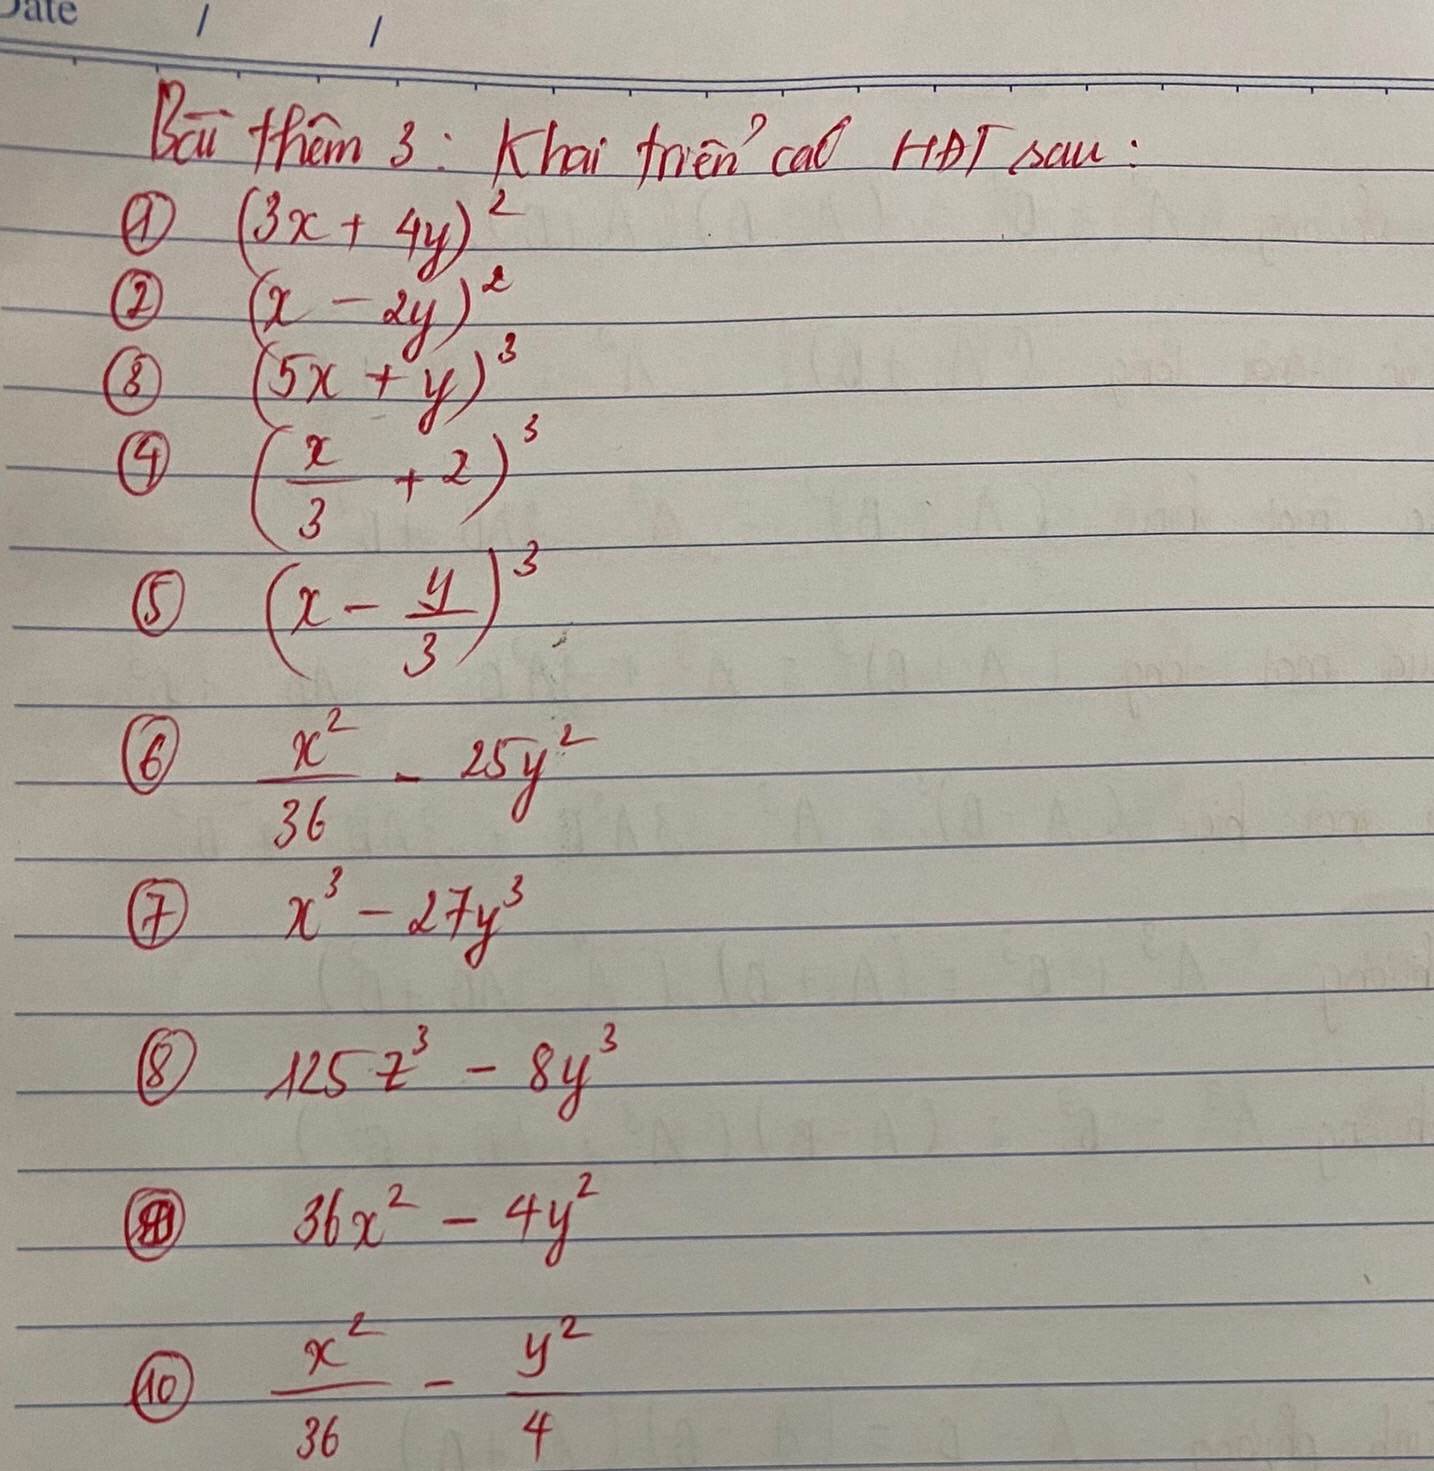 Date / /
Bài thêm 3: Khai triển các HĐT sau:
① (3x + 4y)²
② (x - 2y)²
③ (5x + y)³
④ (x/3 + 2)³
⑤ (x - y/3)³
⑥ x²/36 - 25y²
⑦ x³ - 27y³
⑧ 125z³ - 8y³
⑨ 36x² - 4y²
⑩ x²/36 - y²/4